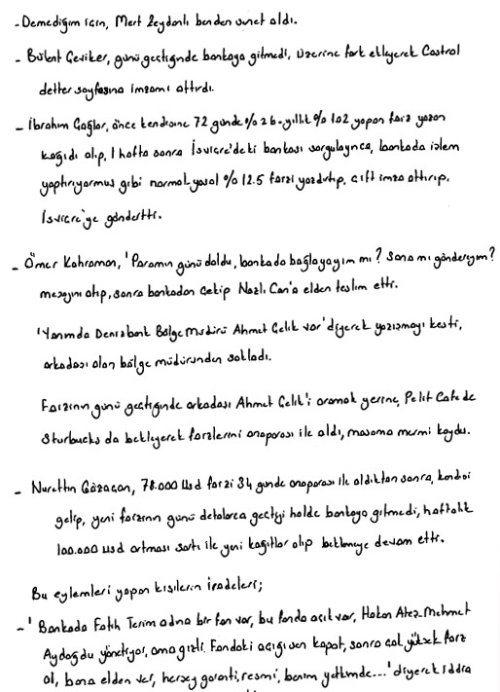 - Demediğim için, Mert Zeydanlı benden senet aldı.
- Bülent Çeviker, günü geçtiğinde bankaya gitmedi, üzerine fark ekleyerek Castrol
defter sayfasına imzamı attırdı.
- İbrahim Çağlar, önce kendisine 72 günde % 26 - yıllık % 102 yapan faiz yazan
kağıdı alıp, 1 hafta sonra İsviçre'deki bankası sorgulayınca, bankada işlem
yaptırıyormuş gibi normal yasal % 12.5 faizi yazdırtıp, çift imza attırıp,
İsviçre'ye gönderttti.
- Ömer Kahraman, 'Paramın günü doldu, bankada bağlayayım mı? Sana mı göndereyim?
mesajını atıp, sonra bankadan çekip Nazlı Can'a elden teslim etti.
'Yanımda Denizbank Bölge Müdürü Ahmet Çelik var' diyerek yazışmayı kesti,
arkadaşı olan bölge müdüründen sakladı.
Faizinin günü geçtiğinde arkadaşı Ahmet Çelik'i aramak yerine, Pelit Cafe de
Sturbucks da bekleyerek faizlerini anaparası ile aldı, masama mermi koydu.
- Nurettin Gözaçan, 78.000 Usd faizi 34 günde anaparası ile aldıktan sonra, kendisi
gelip, yeni faizinin günü defalarca geçtiği halde bankaya gitmedi, haftalık
100.000 USD artması şartı ile yeni kağıtlar alıp beklemeye devam etti.
Bu eylemleri yapan kişilerin iradeleri;
- ' Bankada Fatih Terim adına bir fon var, bu fonda açık var, Hakan Ateş Mehmet
Aydoğdu yönetiyor, ama gizli. Fondaki açığı sen kapat, sonra çok yüksek faiz
al, bana elden ver, herşey garanti, resmi, benim yetkimde...' diyerek iddia